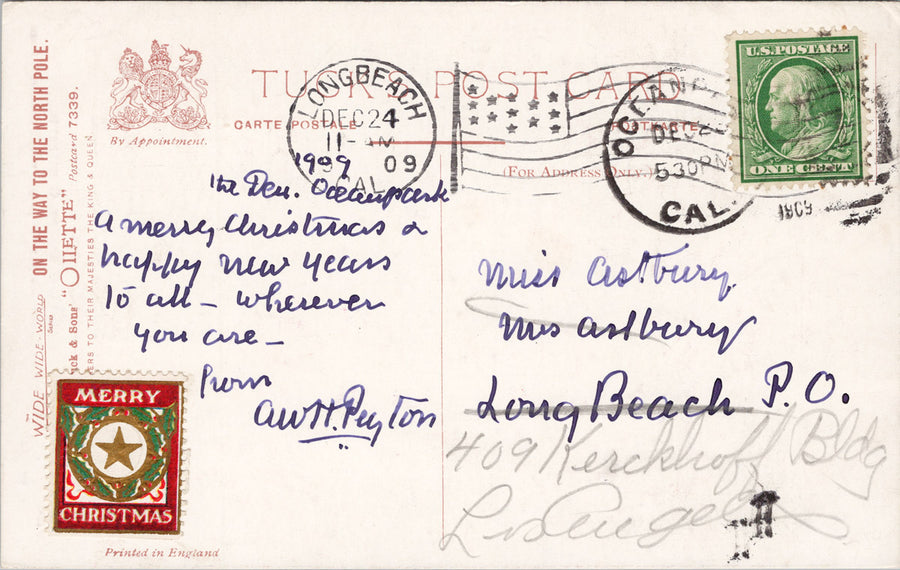 ON THE WAY TO THE NORTH POLE.
WIDE-WIDE-WORLD
SERIES
uck & Sons' "OILETTE" Postcard 7339.
ERS TO THEIR MAJESTIES THE KING & QUEEN
By Appointment.
TUCK'S POST CARD
CARTE POSTALE
(FOR ADDRESS ONLY.)
LONGBEACH
DEC 24
11-AM
09
CAL.
OCEAN
DEC 2
530PM
CAL.
1909
U.S. POSTAGE
ONE CENT
1909
the Den. Oceanpark
a merry Christmas &
happy new years
to all – wherever
you are –
from
AWH. Peyton
Miss Astbury
Mrs Astbury
Long Beach P.O.
409 Kerckhoff Bldg
Los Angeles
MERRY
CHRISTMAS
Printed in England